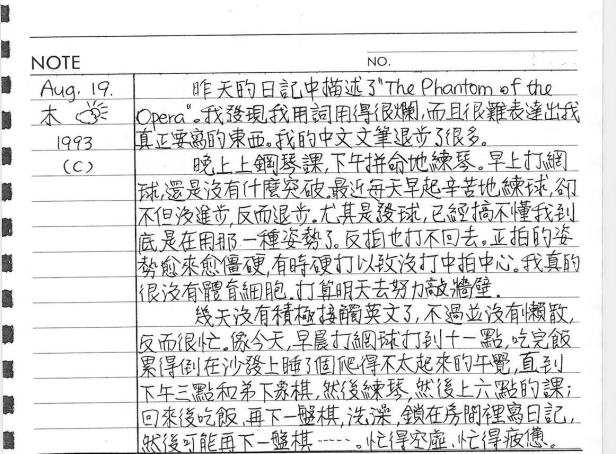 NOTE
NO.
Aug. 19.
木
1993
(C)
昨天的日記中描述了"The Phantom of the
Opera"。我發現我用詞用得很爛,而且很難表達出我
真正要寫的東西。我的中文文筆退步了很多。
晚上上鋼琴課,下午拼命地練琴。早上打網
球,還是沒有什麼突破。最近每天早起辛苦地練球,卻
不但沒進步,反而退步。尤其是發球,已經搞不懂我到
底是在用那一種姿勢了。反拍也打不回去。正拍的姿
勢愈來愈僵硬,有時硬打以致沒打中拍中心。我真的
很沒有體育細胞。打算明天去努力敲牆壁。
幾天沒有積極接觸英文了,不過並沒有懶散,
反而很忙。像今天,早晨打網球打到十一點,吃完飯
累得倒在沙發上睡了個爬得不太起來的午覺,直到
下午三點和弟下象棋,然後練琴,然後上六點的課;
回來後吃飯,再下一盤棋,洗澡,鎖在房間裡寫日記,
然後可能再下一盤棋……。忙得空虛、忙得疲憊。